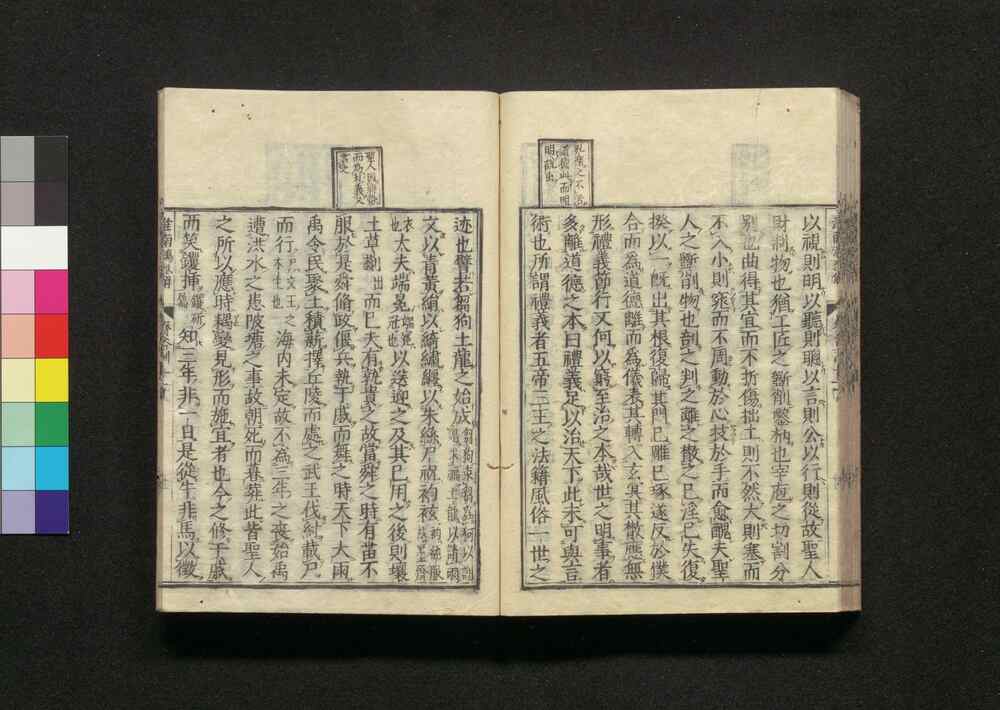 以視則明以聽則聰以言則公以行則從故聖人
財制物也猶工匠之斲削鑿枘也宰庖之切割分
別也曲得其宜而不折傷拙工則不然大則塞而
不入小則窕而不周動於心枝於手而愈醜夫聖
人之斲削物也剖之判之離之散之已淫已失復
揆以一既出其根復歸其門已雕已琢遂反於樸
合而為道德離而為儀表其轉入玄冥其散應無
形禮義節行又何以窮至治之本哉世之明事者
多離道德之本曰禮義足以治天下此未可與言
術也所謂禮義者五帝三王之法籍風俗一世之
聖人因時俗
而為禮義文
迹也譬若芻狗土龍之始成
文以青黃絹以綺繡纏以朱絲尸祝袀袨
大夫端冕以送迎之及其已用之後則壤
土草剗而已夫有孰貴之故當舜之時有苗不
服於是舜脩政偃兵執干戚而舞之時天下大雨
禹令民聚土積薪擇丘陵而處之武王伐紂載尸
而行海内未定故不為三年之喪始禹
遭洪水之患陂塘之事故朝死而暮葬此皆聖人
之所以應時耦變見形而施宜者也今之修干戚
而笑钁插知三年非一日是從牛非馬以徵